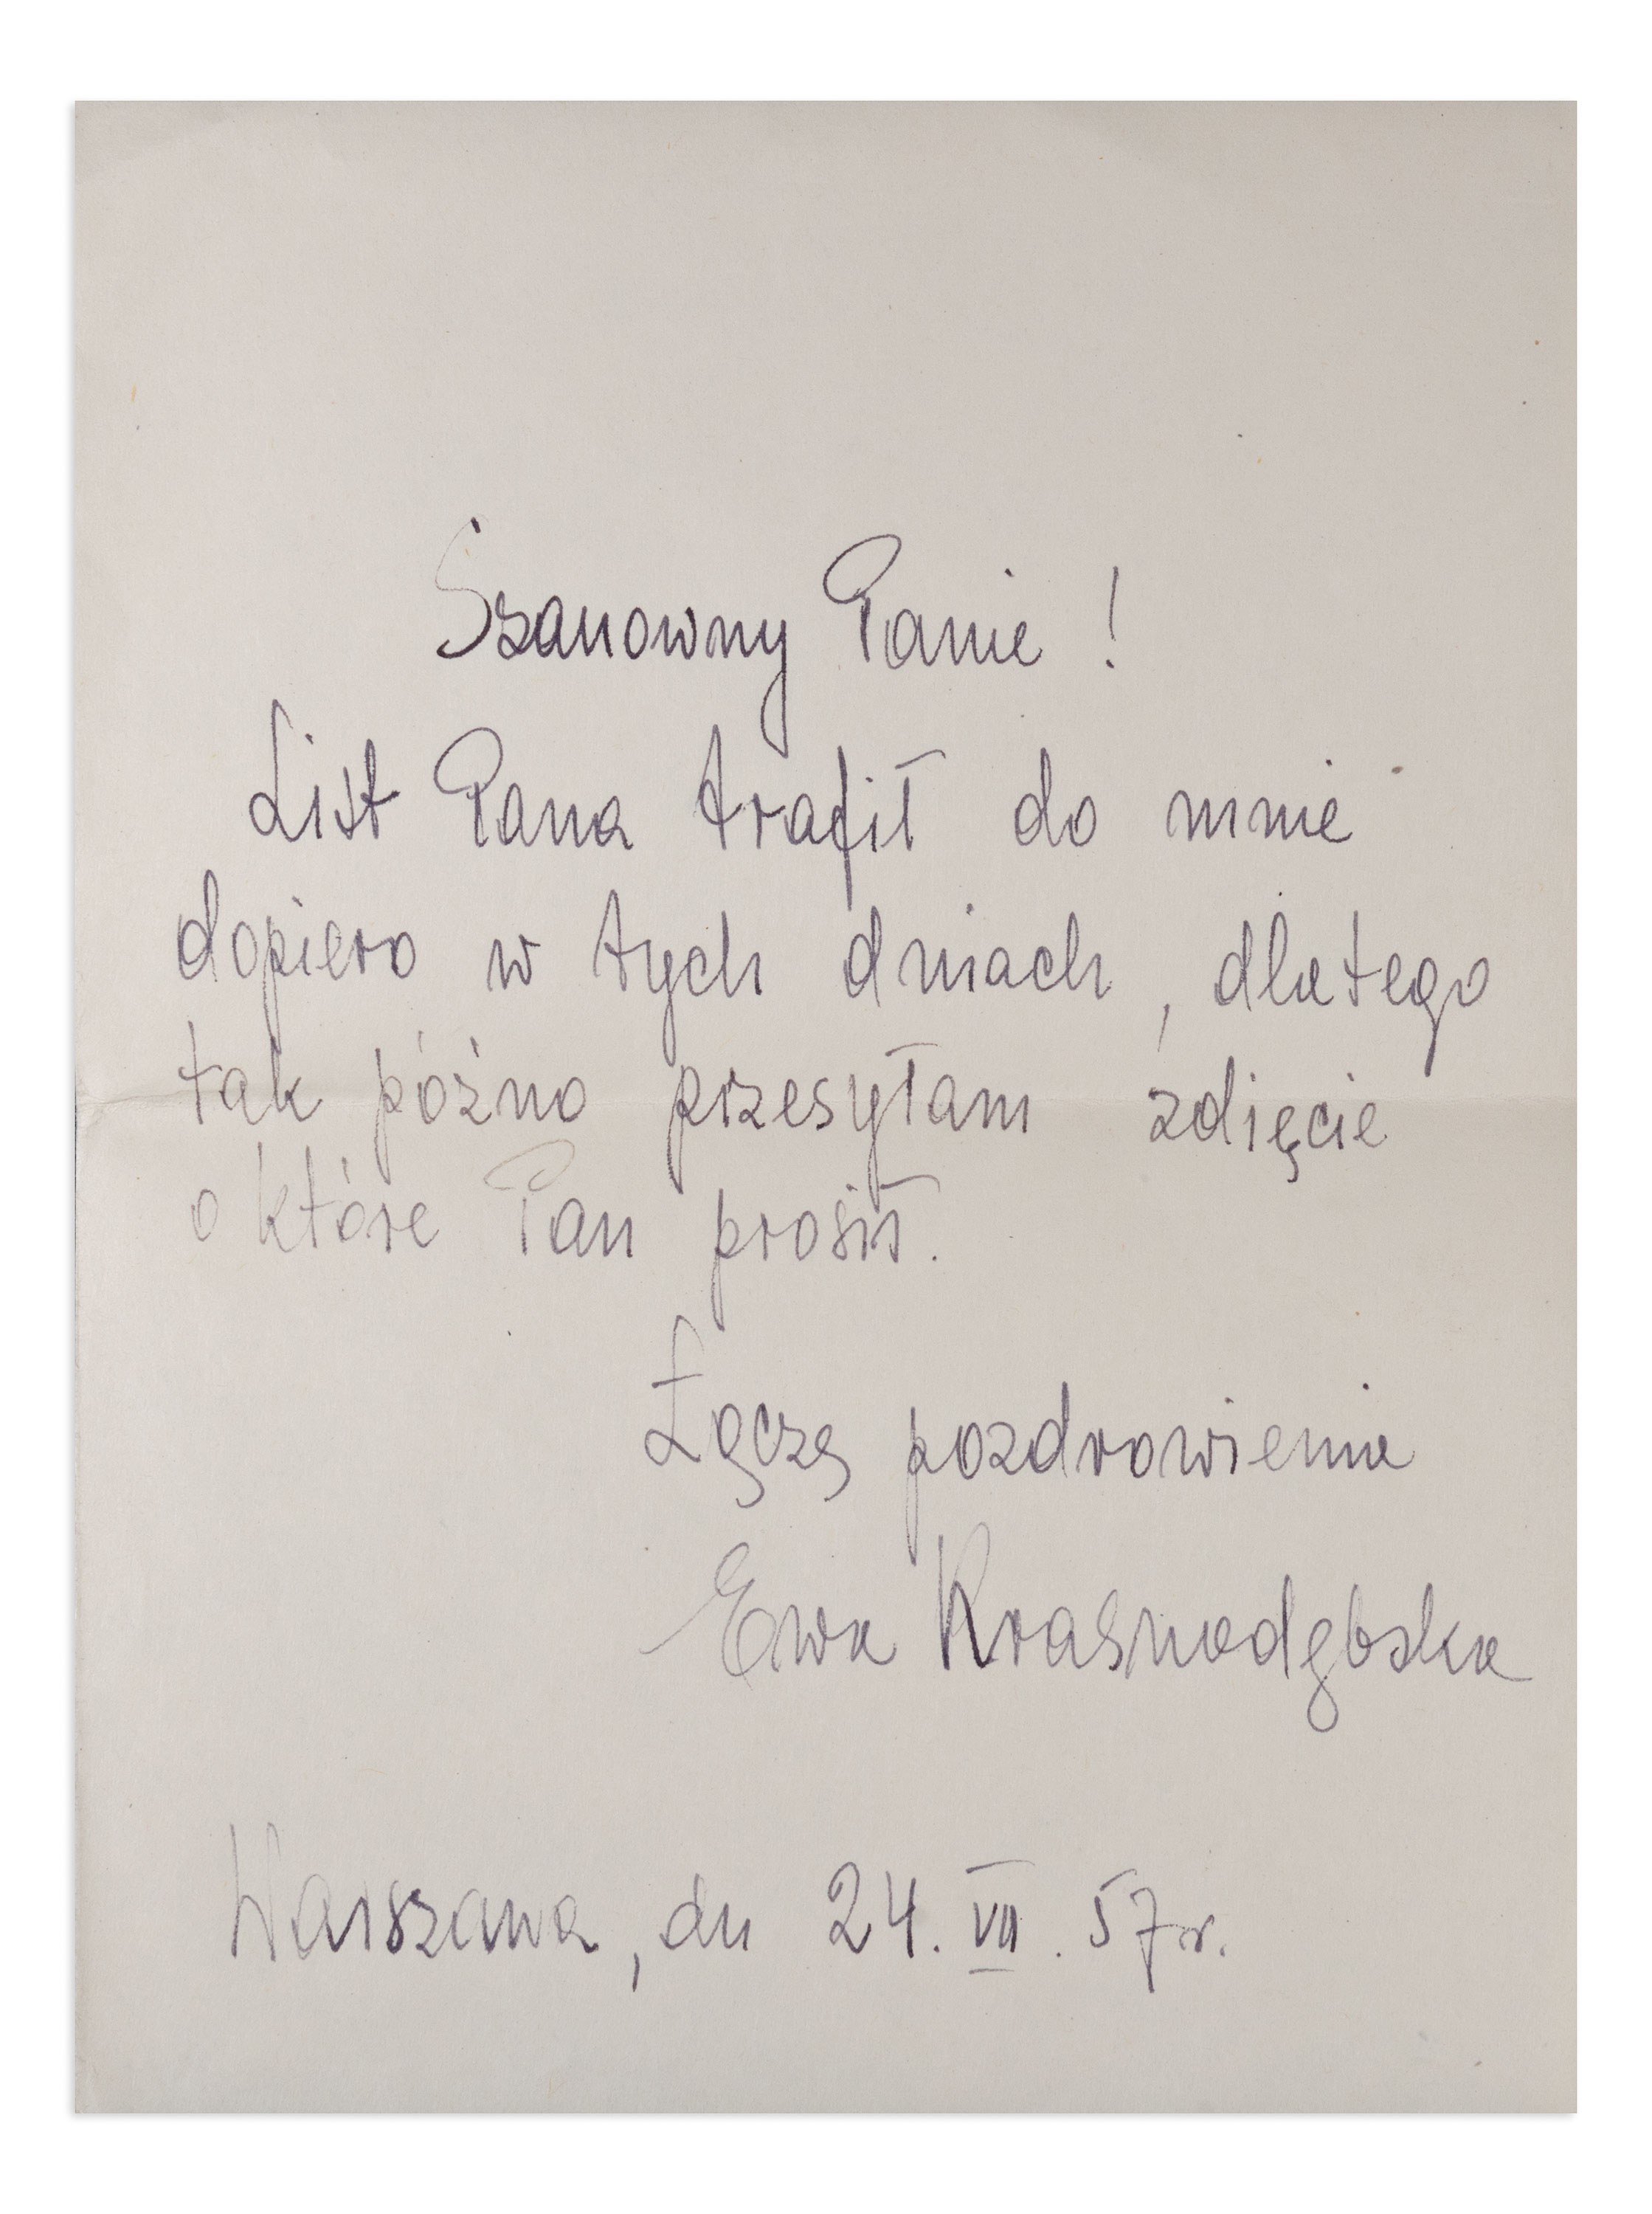 Szanowny Panie !
List Pana trafił do mnie
dopiero w tych dniach, dlatego
tak późno przesyłam zdięcie
o które Pan prosił.
Łączę pozdrowienia
Ewa Krasnodębska
Warszawa, dn 24. VII. 57r.